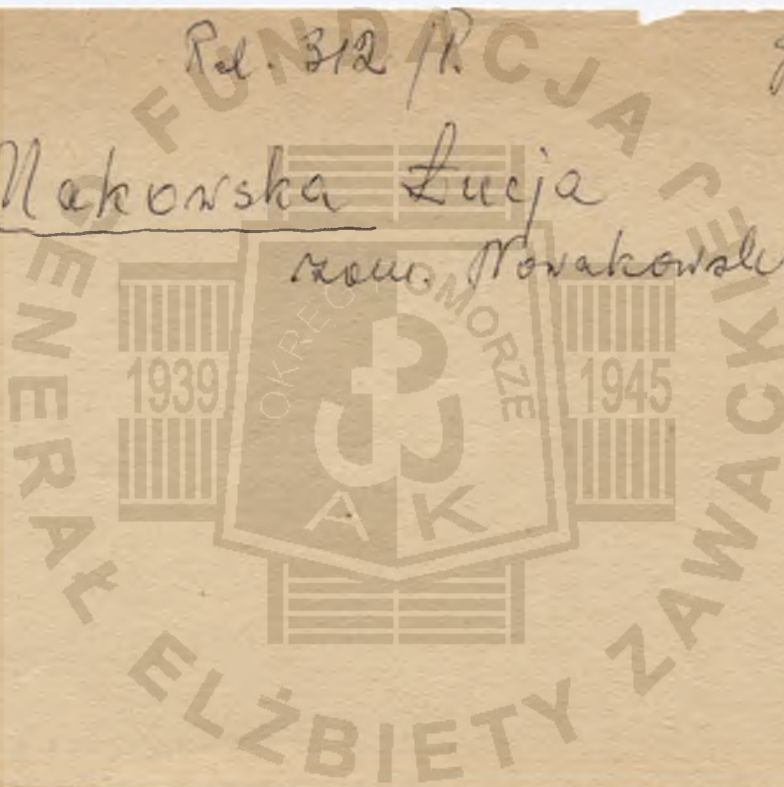 Rel. 312 /P.
Makowska Łucja
zam. Nowakowsk
FUNDACJA GENERAŁ ELŻBIETY ZAWACKIEJ
OKRĘG POMORZE
1939
1945
AK